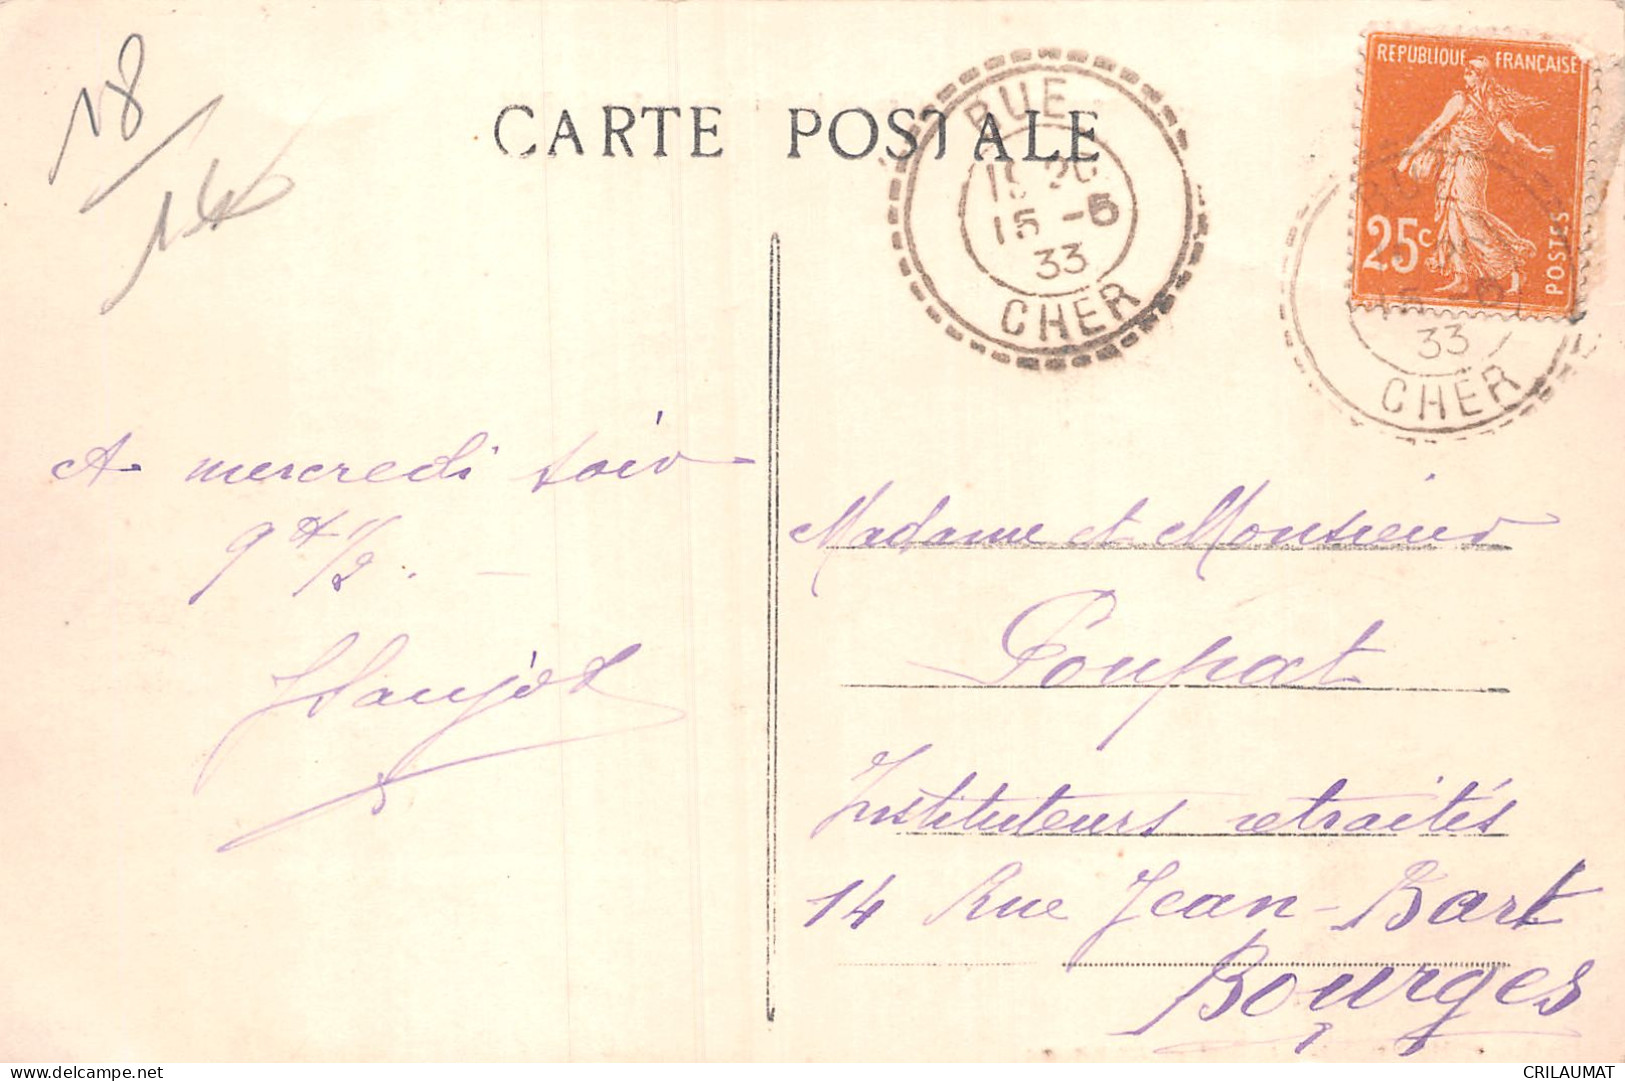 18
CARTE POSTALE
BUE
15 -6
33
CHER
REPUBLIQUE FRANÇAISE
25c
POSTES
33
CHER
A mercredi soir
9 H 1/2. –
Madame et Monsieur
Poupat
Instituteurs retraités
14 Rue Jean-Bart
Bourges
delcampe.net
CRILAUMAT